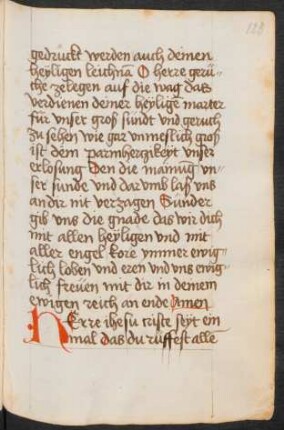 128
gedruckt werden auch deinen
heyligen leichnã O herre geru-
che zelegen auf die wag das
verdienen deiner heylige marter
fur vnser groß sundt vnd geruch
zu sehen wie gar vnmeslich groß
ist dein parmhergikeyt vnser
erlosung Den die mainũg vn-
ser sunde vnd darumb laß vns
an dir nit verzagen Sunder
gib vns die gnade das wir dich
mit allen heyligen vnd mit
aller engel kore ymmer ewig-
lich loben vnd eren vnd vns ewig-
lich freuen mit dir in deinem
ewigen reich an ende Amen
HErre ihesu criste seyt ein
mal das du ruffest alle